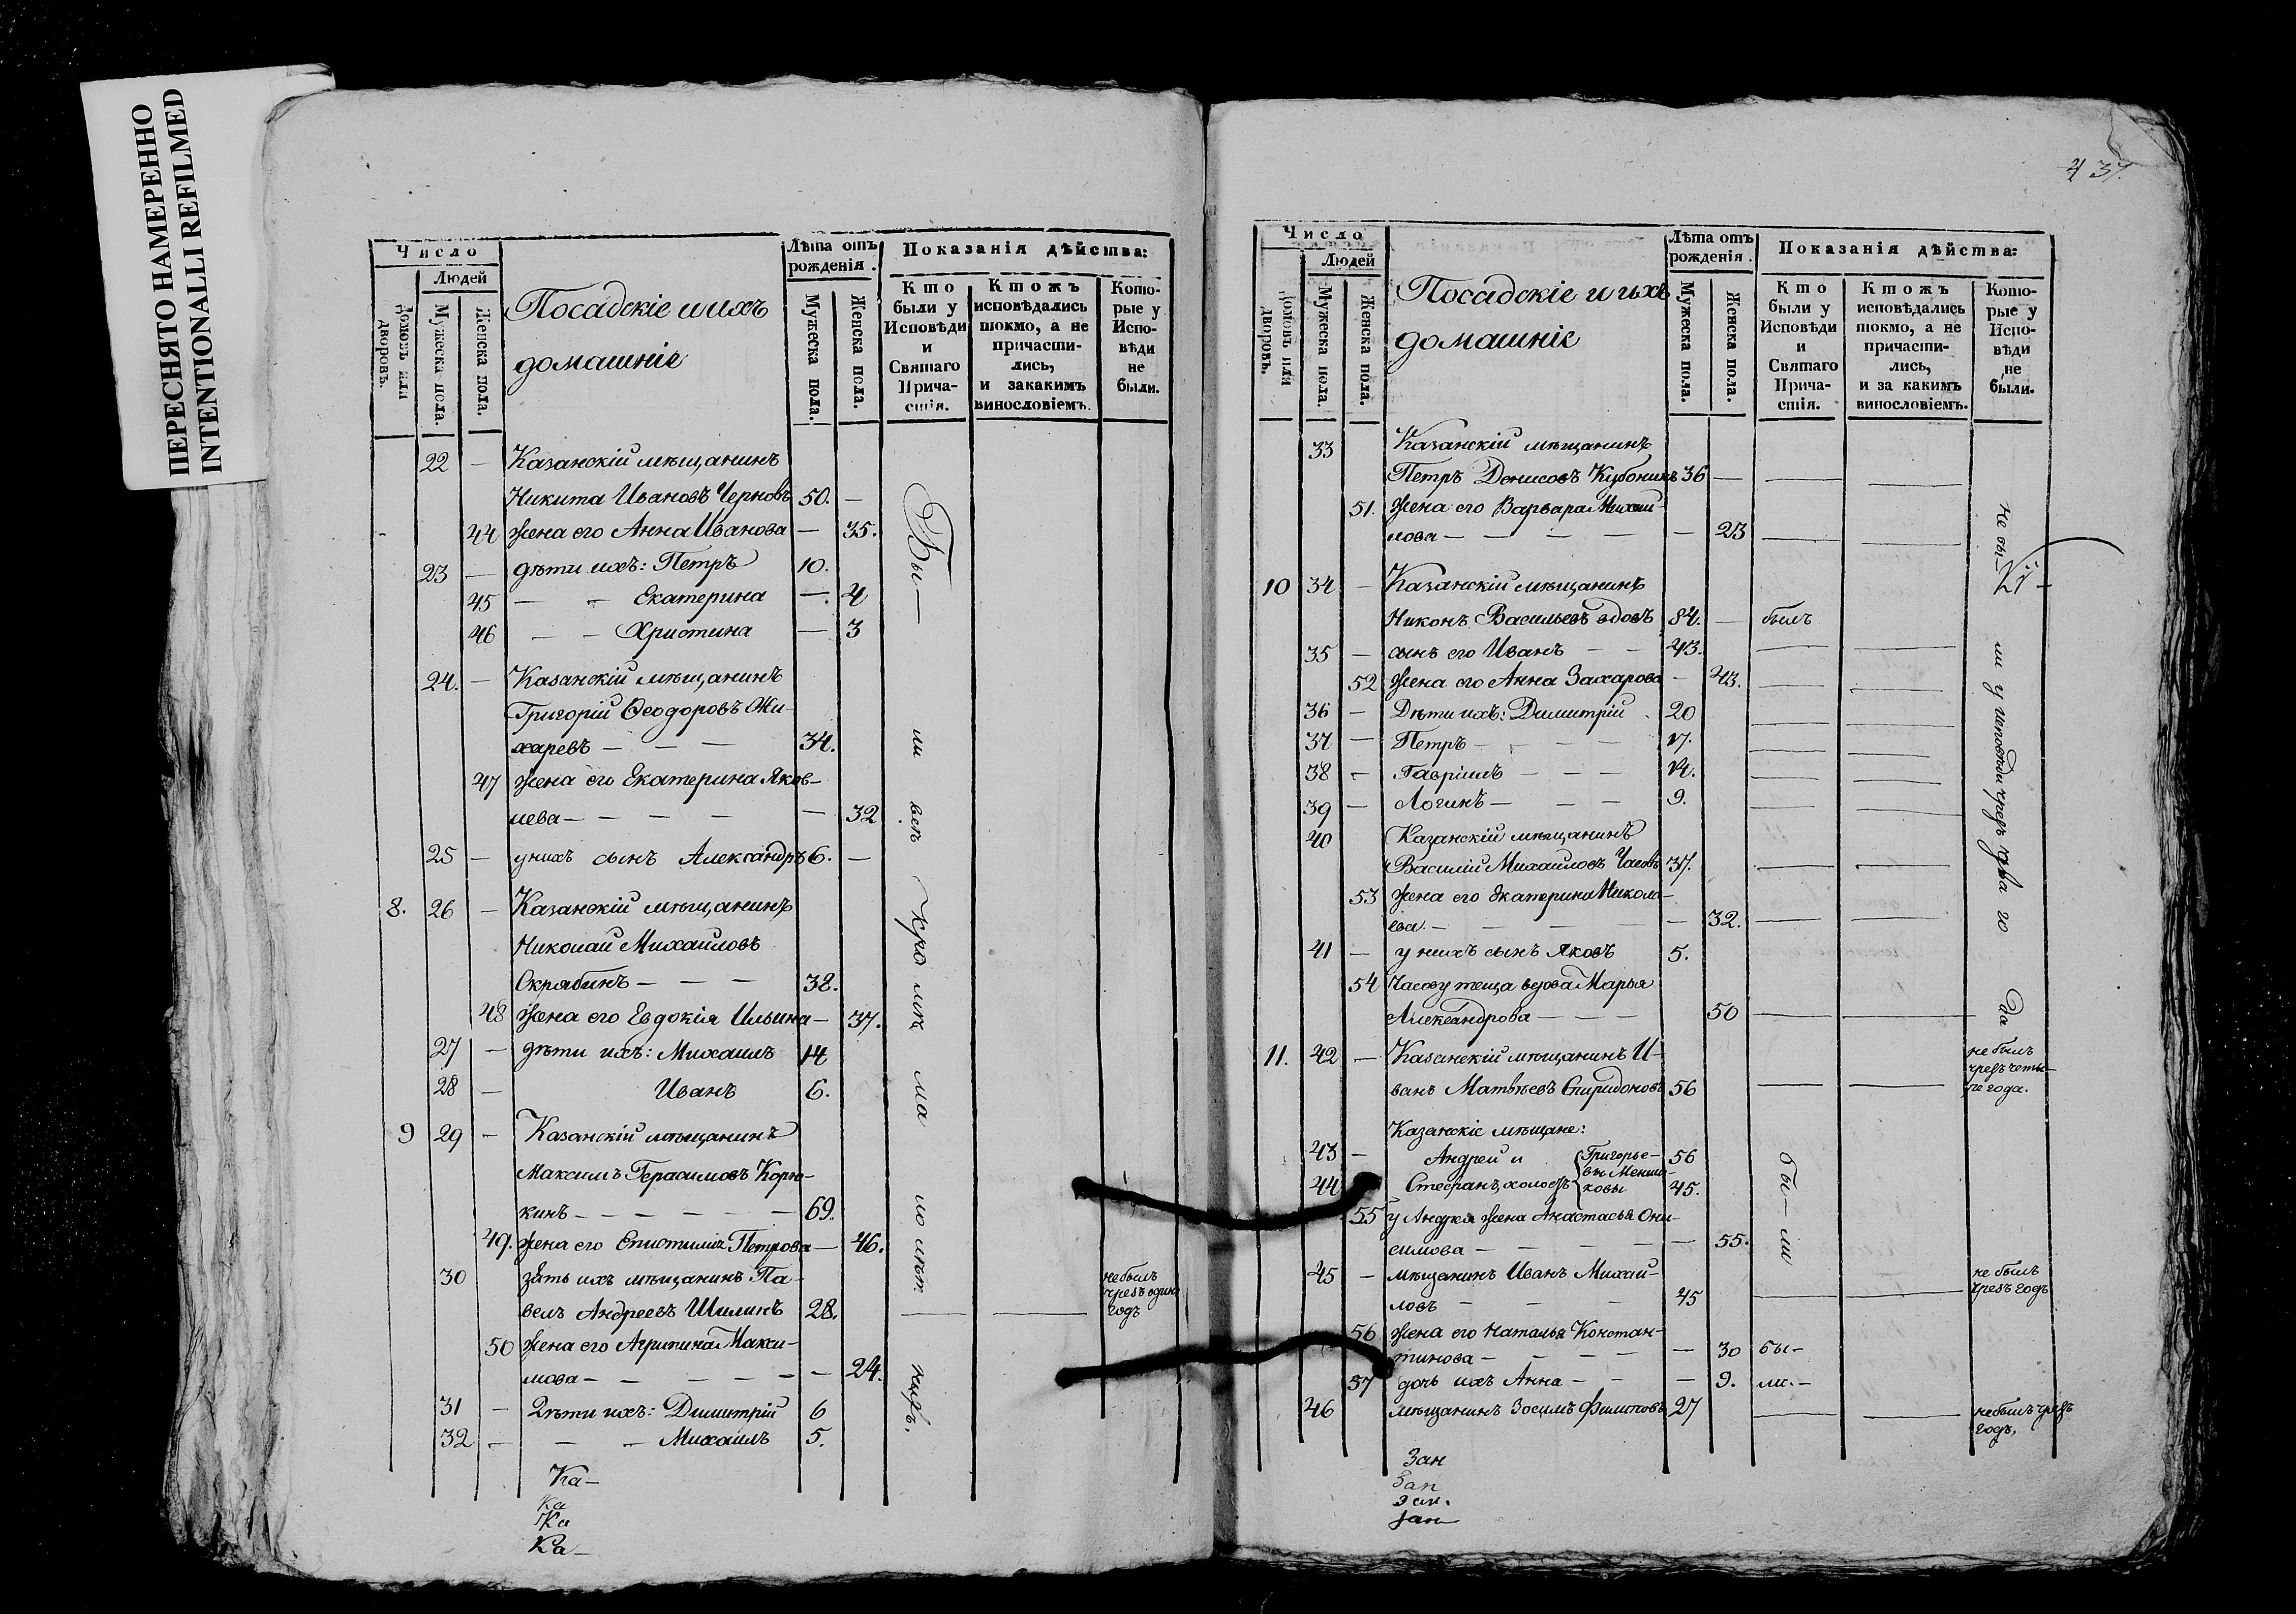 ПЕРЕСНЯТО НАМЕРЕННО
INTENTIONALLI REFILMED
Число
Людей
Домовъ или дворовъ.
Мужеска пола.
Женска пола.
Посадскіе и ихъ
домашніе
Лѣта отъ рожденія.
Мужеска пола.
Женска пола.
Показанія дѣйства:
Кто были у Исповѣди и Святаго Причастія.
Ктожъ исповѣдались токмо, а не причастились, и закакимъ винословіемъ.
Которые у Исповѣди не были.
22 — Казанскій мѣщанинъ
Никита Ивановъ Черновъ 50. —
44 жена его Анна Иванова — 35.
23 — дѣти ихъ: Петръ 10.
45 — — Екатерина — 4
46 — — Христина — 3
24. — Казанскій мѣщанинъ
Григорій Ѳеодоровъ Жи-
харевъ — — — 34.
47 жена его Екатерина Яков-
лева — — — — — 32
25 — у нихъ сынъ Александръ 6. —
8. 26 — Казанскій мѣщанинъ
Николай Михайловъ
Скрябинъ — — — 38.
48 жена его Евдокія Ильина — 37.
27 — дѣти ихъ: Михаилъ 14
28 — Иванъ 6.
9 29 — Казанскій мѣщанинъ
Максимъ Герасимовъ Корю-
кинъ — — — — — 69.
49. жена его Епистимія Петрова — 46.
30 зять ихъ мѣщанинъ Па-
велъ Андреевъ Шилинъ 28. — — не былъ чрезъ одинъ годъ
50 жена его Агрипина Макси-
мова — — — — — 24.
31 — Дѣти ихъ: Димитрій 6
32 — — — Михаилъ 5.
Бы — ли всѣ кромѣ малолѣтнихъ.
Ка-
Ка
Ка
Ка-
437.
Число
Людей
Домовъ или дворовъ.
Мужеска пола.
Женска пола.
Посадскіе и ихъ
домашніе
Лѣта отъ рожденія.
Мужеска пола.
Женска пола.
Показанія дѣйства:
Кто были у Исповѣди и Святаго Причастія.
Ктожъ исповѣдались токмо, а не причастились, и за какимъ винословіемъ.
Которые у Исповѣди не были.
33 Казанскій мѣщанинъ
Петръ Денисовъ 36 — — —
51. Жена его Варвара Михай-
лова — — — — — 23 — —
10 34 — Казанскій мѣщанинъ
Никонъ Васильевъ вдовъ 84. — былъ
35 — сынъ его Иванъ — — 43. — —
52 Жена его Анна Захарова — 43. — —
36 — Дѣти ихъ: Димитрій 20 — —
37 — Петръ — — — — 17. — —
38 — Гавріилъ — — — 14. — —
39 — Логинъ — — — 9. — —
40 Казанскій мѣщанинъ
Василій Михайловъ Часовъ 37. — —
53 жена его Екатерина Никола-
ева. — — — — — 32. — —
41 — у нихъ сынъ Яковъ 5.
54 Часову теща вдова Марья
Александрова — — — 50 — —
не бы — ли у исповѣди чрезъ года
11. 42 — Казанскій мѣщанинъ И-
ванъ Матвѣевъ Спиридоновъ 56 — — не былъ чрезъ четы-ре года.
Казанскіе мѣщане:
43 — Андрей и {Григорье- 56
44 Стефанъ, холостъ {вы Менша-ковы 45.
55 у Андрея жена Анастасья Они-
симова — — — — — 55.
бы — ли
45 — мѣщанинъ Иванъ Михай-
ловъ — — — 45 — — не былъ чрезъ годъ
56 жена его Наталья Констан-
тинова — — — — — 30 бы-
57 дочь ихъ Анна — — — 9. ли. —
46 мѣщанинъ Зосимъ Филиповъ 27 — — не былъ чрезъ годъ,
Зан
Зан
Зан.
Зан